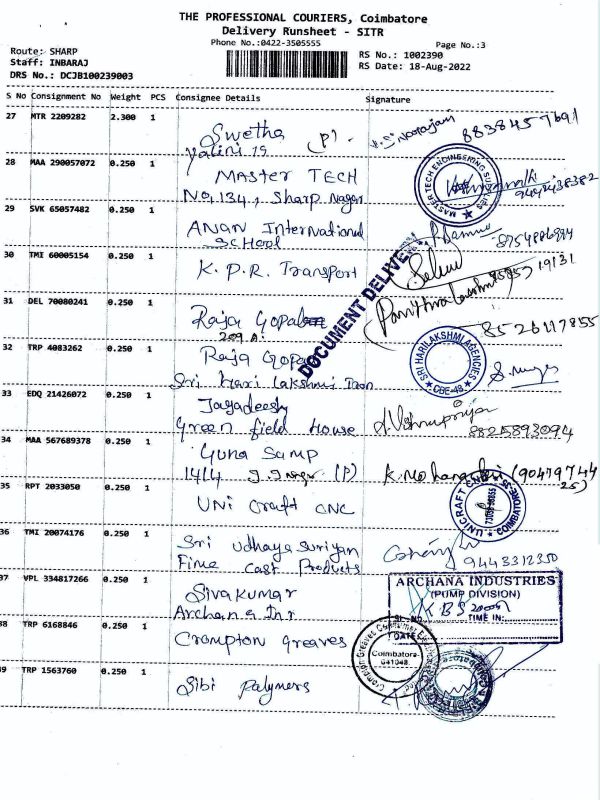 THE PROFESSIONAL COURIERS, Coimbatore
Delivery Runsheet - SITR
Phone No.:0422-3505555
Page No.:3
Route: SHARP
RS No.: 1002390
Staff: INBARAJ
RS Date: 18-Aug-2022
DRS No.: DCJB100239003
S No Consignment No Weight PCS Consignee Details Signature
27 MTR 2209282 2.300 1
Swetha (P)
8838457691
28 MAA 290057072 0.250 1
MASTER TECH
No,134, Sharp Nagar
MASTER TECH ENGINEERING
9494438382
29 SVK 65057482 0.250 1
ANAN International
SCHOOL
8754886994
30 TMI 60005154 0.250 1
K.P.R. Transport
DOCUMENT DELIVERY
31 DEL 70080241 0.250 1
Raja Gopal
8526117855
32 TRP 4083262 0.250 1
Raja Gopal
Sri Hari Lakshmi Iron
SRI HARILAKSHMI AGENCIES
CBE-49
33 EDQ 21426072 0.250 1
Jagadeesh
Green field House
9825893094
34 MAA 567689378 0.250 1
Guna Samp
1414 (P)
K. Mohana (90479744
25)
35 RPT 2033050 0.250 1
UNI Craft CNC
UNICRAFT
COIMBATORE-35
36 TMI 20074176 0.250 1
Sri Udhaya Suriyan
Fine Cast Products
9443312350
37 VPL 334817266 0.250 1
Sivakumar
Archana Inr
ARCHANA INDUSTRIES
(PUMP DIVISION)
SI. NO.
DATE
TIME IN:
38 TRP 6168846 0.250 1
Crompton greaves
Crompton Greaves Consumer
Coimbatore-
641048
39 TRP 1563760 0.250 1
Sibi Polymers